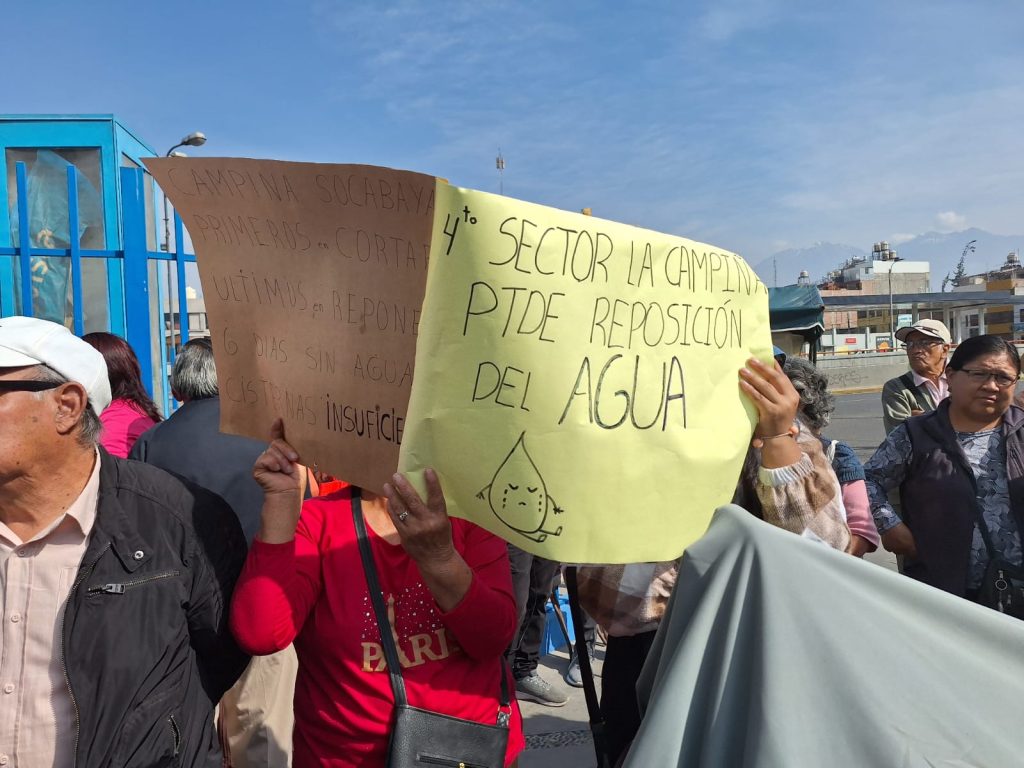 CAMPIÑA SOCABAYA
PRIMEROS en CORTAR
ULTIMOS en REPONE
6 DIAS SIN AGUA
CISTERNAS INSUFICIE
4to SECTOR LA CAMPIÑA
PTDE REPOSICIÓN
DEL AGUA
PARIS